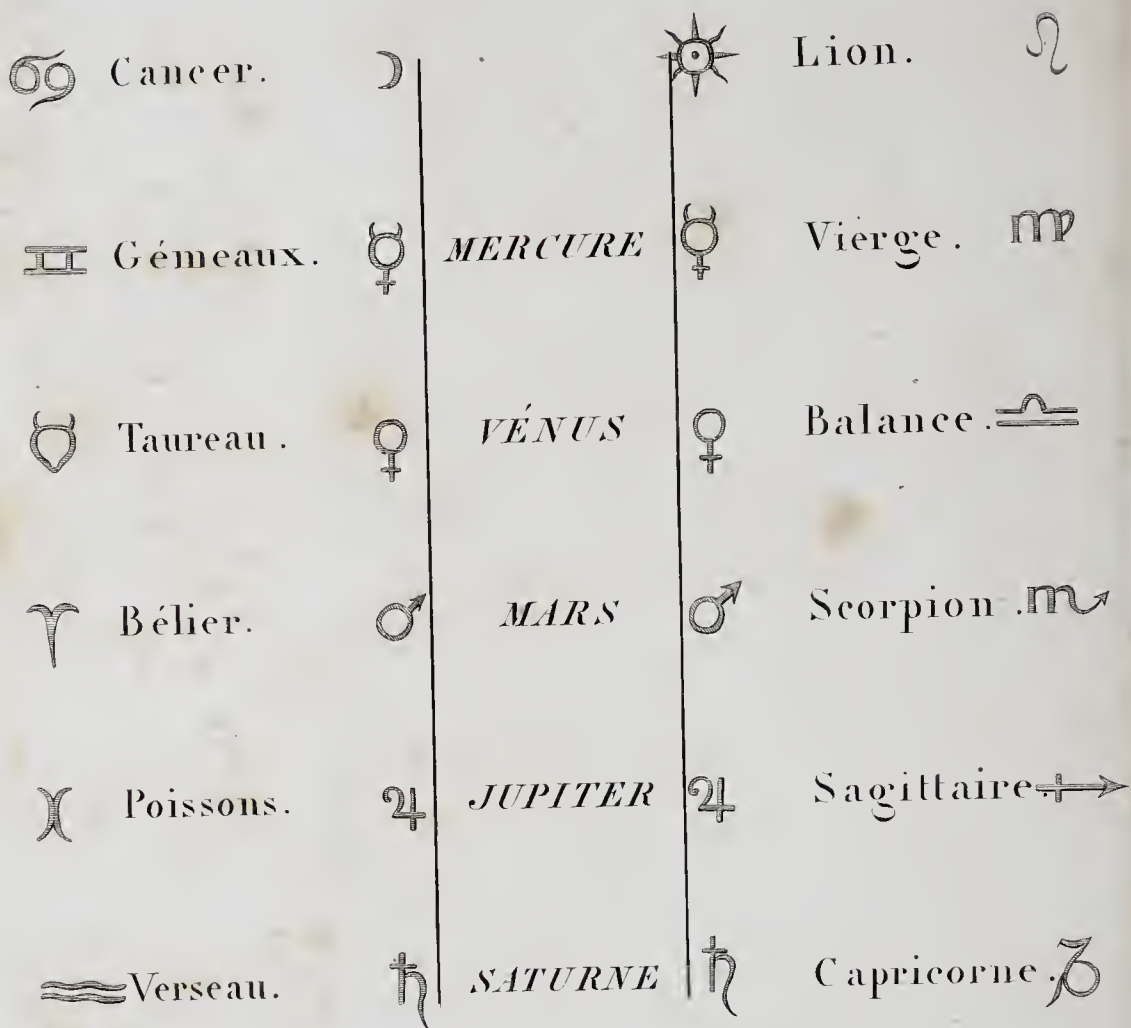 ♋ Cancer. ☽ ☉ Lion. ♌
♊ Gémeaux. ☿ MERCURE ☿ Vierge. ♍
♉ Taureau. ♀ VÉNUS ♀ Balance. ♎
♈ Bélier. ♂ MARS ♂ Scorpion. ♏
♓ Poissons. ♃ JUPITER ♃ Sagittaire. ♐
♒ Verseau. ♄ SATURNE ♄ Capricorne. ♑